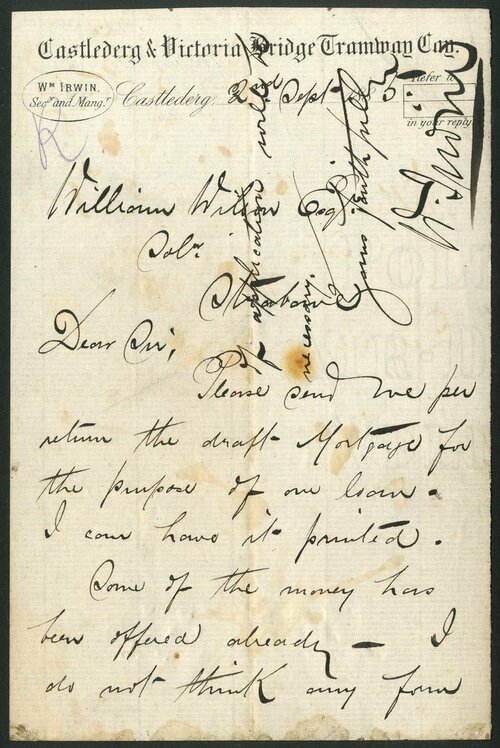 Castlederg & Victoria Bridge Tramway Coy.
Wm IRWIN,
Secy. and Mangr.
Castlederg, 2nd Septr 5
Refer to
in your reply.
K
William Wilson Esqr
Solr
Strabane
Dear Sir;
Please send me per
return the draft Mortgage for
the purpose of our loan.
I can have it printed.
Some of the money has
been offered already – I
do not think any form
of application will be
necessary.
Yours faithfully
W. Irwin